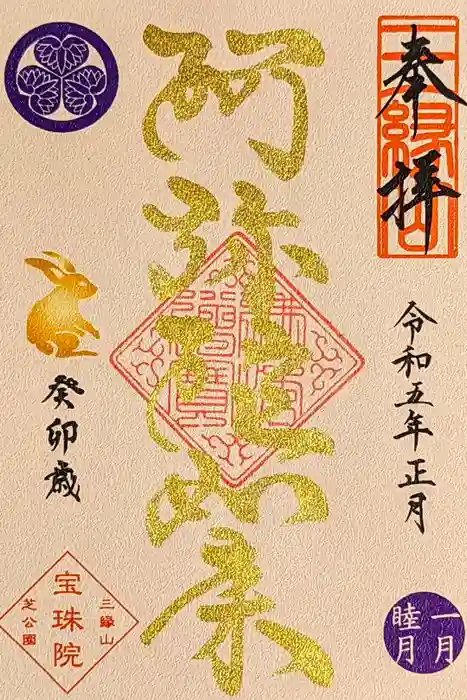 奉拝
三縁山
令和五年正月
一月
睦月
阿弥陀如来
癸卯歳
三縁山
宝珠院
芝公園